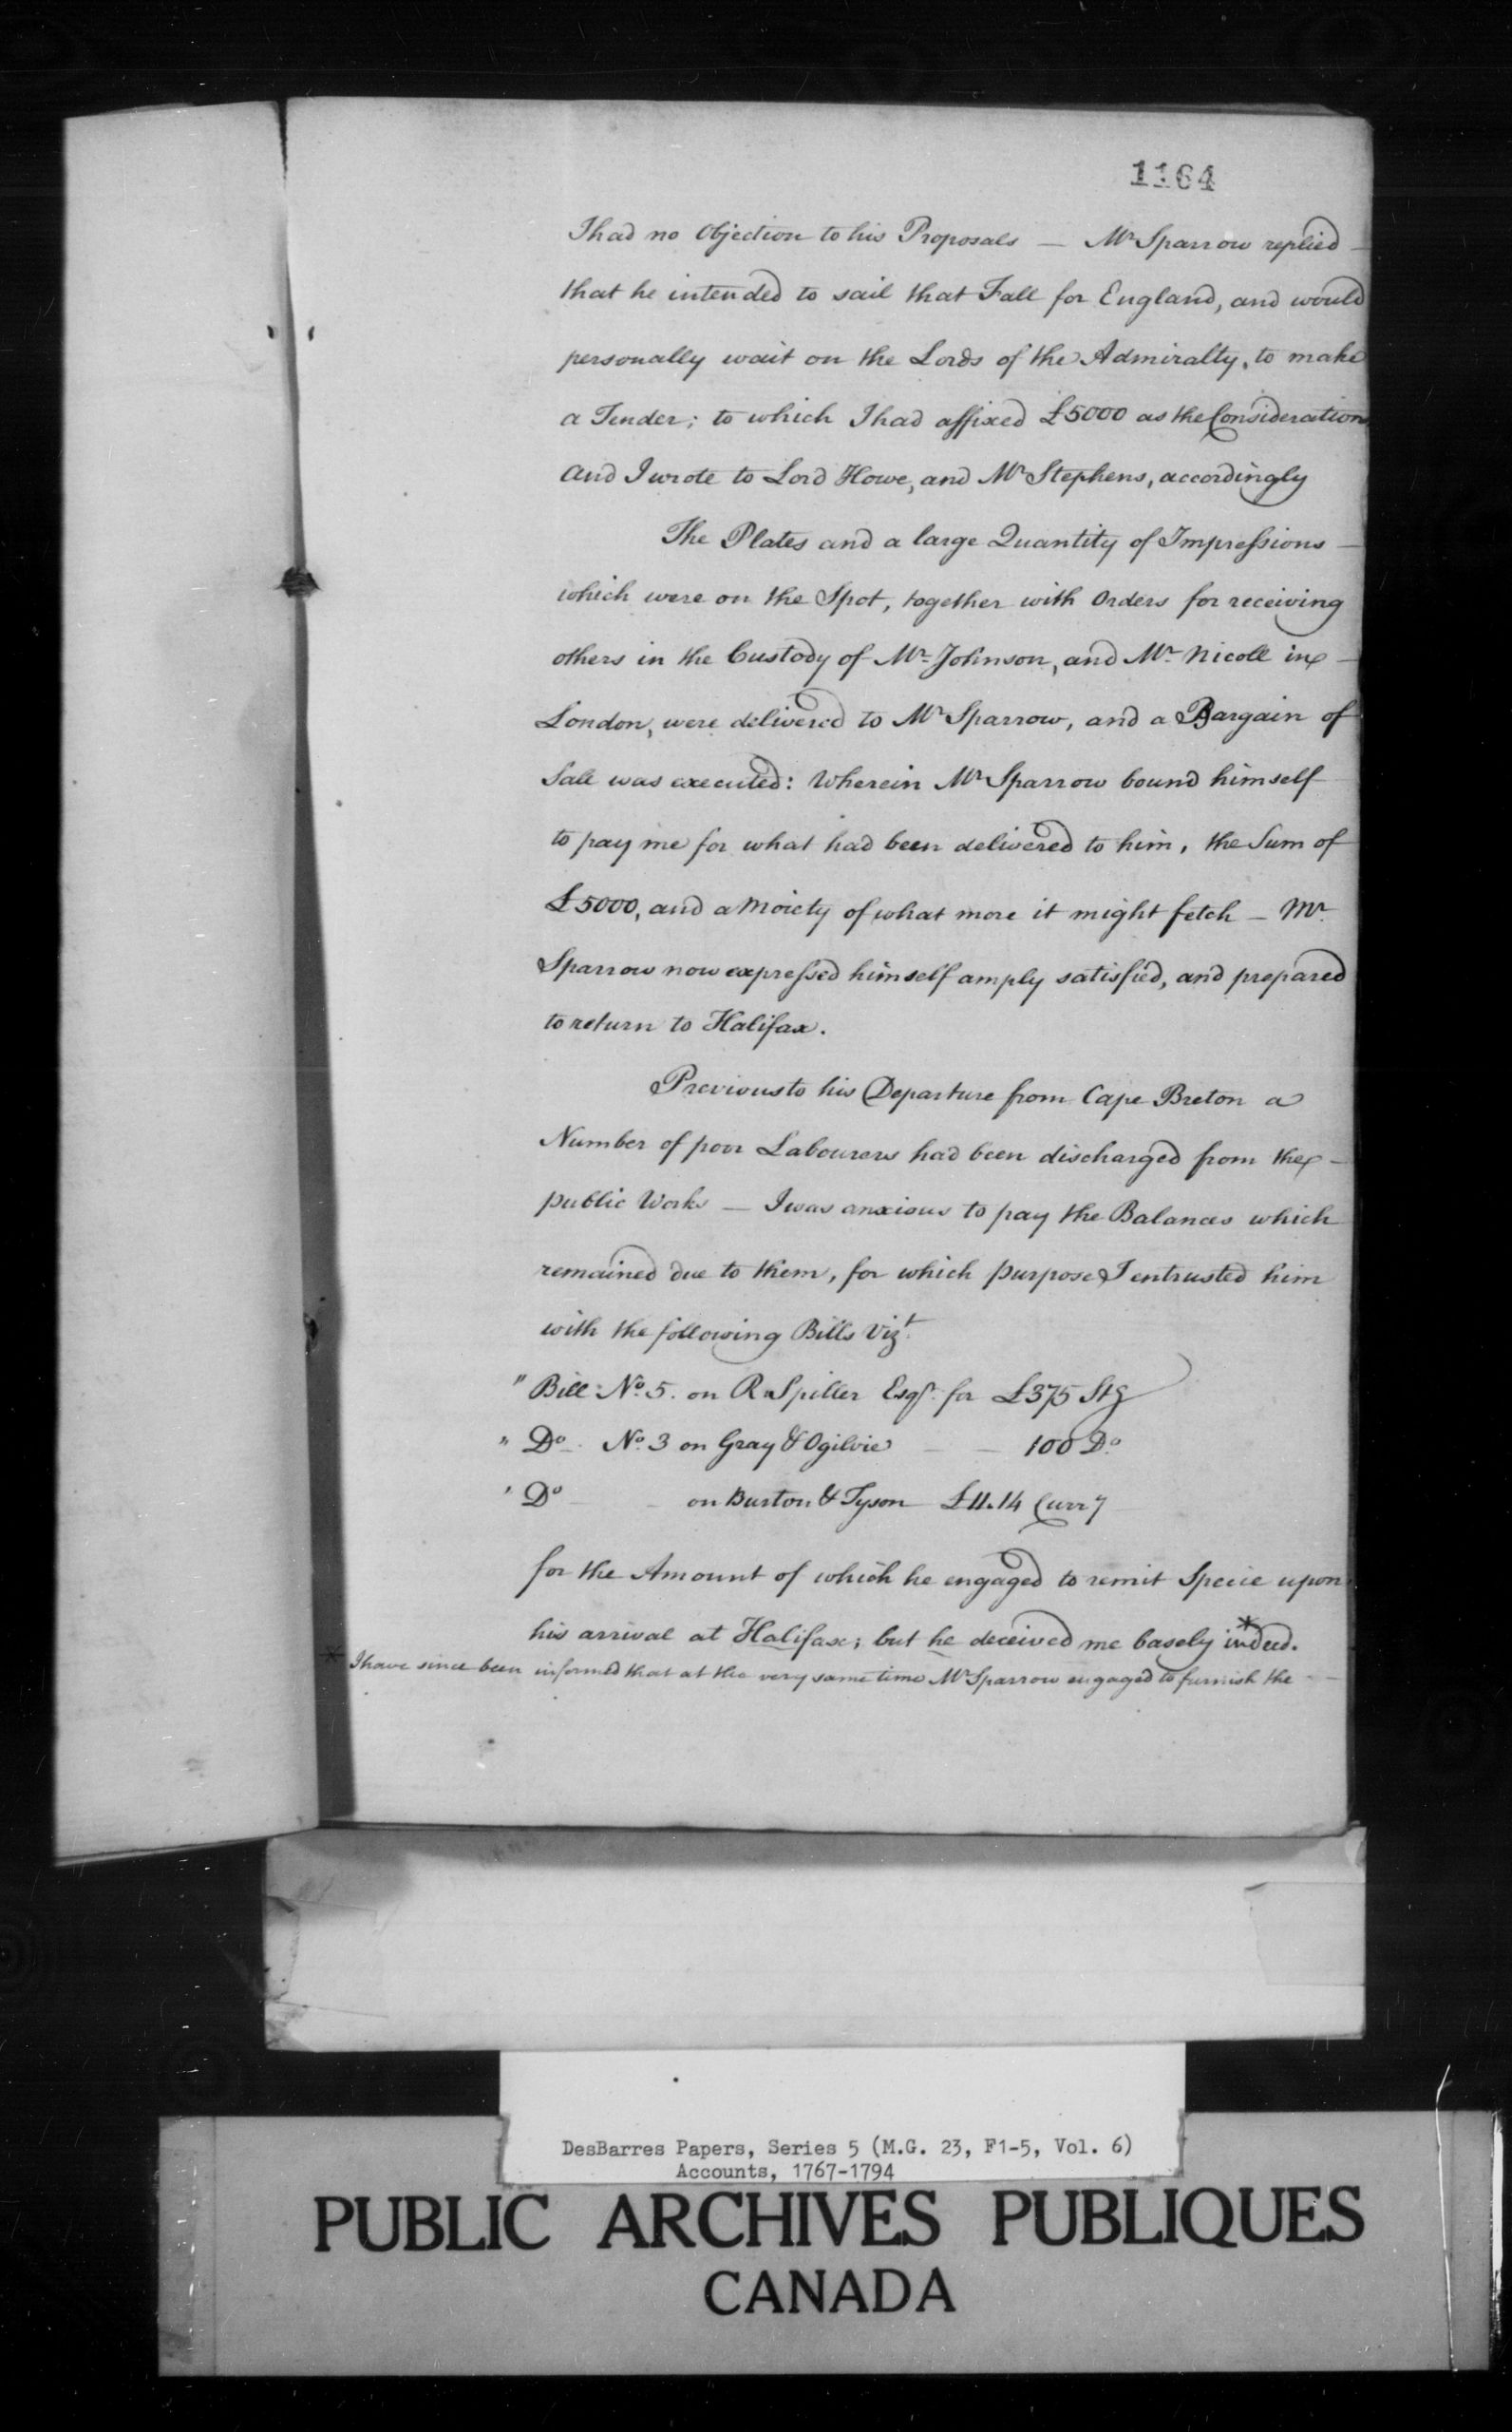 1164
I had no Objection to his Proposals — Mr Sparrow replied —
that he intended to sail that Fall for England, and would
personally wait on the Lords of the Admiralty, to make
a Tender; to which I had affixed £5000 as the Consideration
and I wrote to Lord Howe, and Mr Stephens, accordingly
The Plates and a large Quantity of Impressions —
which were on the Spot, together with Orders for receiving
others in the Custody of Mr Johnson, and Mr Nicoll in —
London, were delivered to Mr Sparrow, and a Bargain of
Sale was executed: Wherein Mr Sparrow bound himself
to pay me for what had been delivered to him, the Sum of
£5000, and a Moiety of what more it might fetch — Mr
Sparrow now expressed himself amply satisfied, and prepared
to return to Halifax.
Previous to his Departure from Cape Breton a
Number of poor Labourers had been discharged from the —
public Works — I was anxious to pay the Balances which
remained due to them, for which purpose I entrusted him
with the following Bills Vizt
" Bill No 5. on R Spiller Esqr for £375 Stg
" Do. No. 3 on Gray & Ogilvie — — 100 Do
' Do — — on Burton & Tyson £11.14 Curry
for the Amount of which he engaged to remit Specie upon
his arrival at Halifax; but he deceived me basely indeed.*
* I have since been informed that at the very same time Mr Sparrow engaged to furnish the — —
DesBarres Papers, Series 5 (M.G. 23, F1-5, Vol. 6)
Accounts, 1767-1794
PUBLIC ARCHIVES PUBLIQUES
CANADA